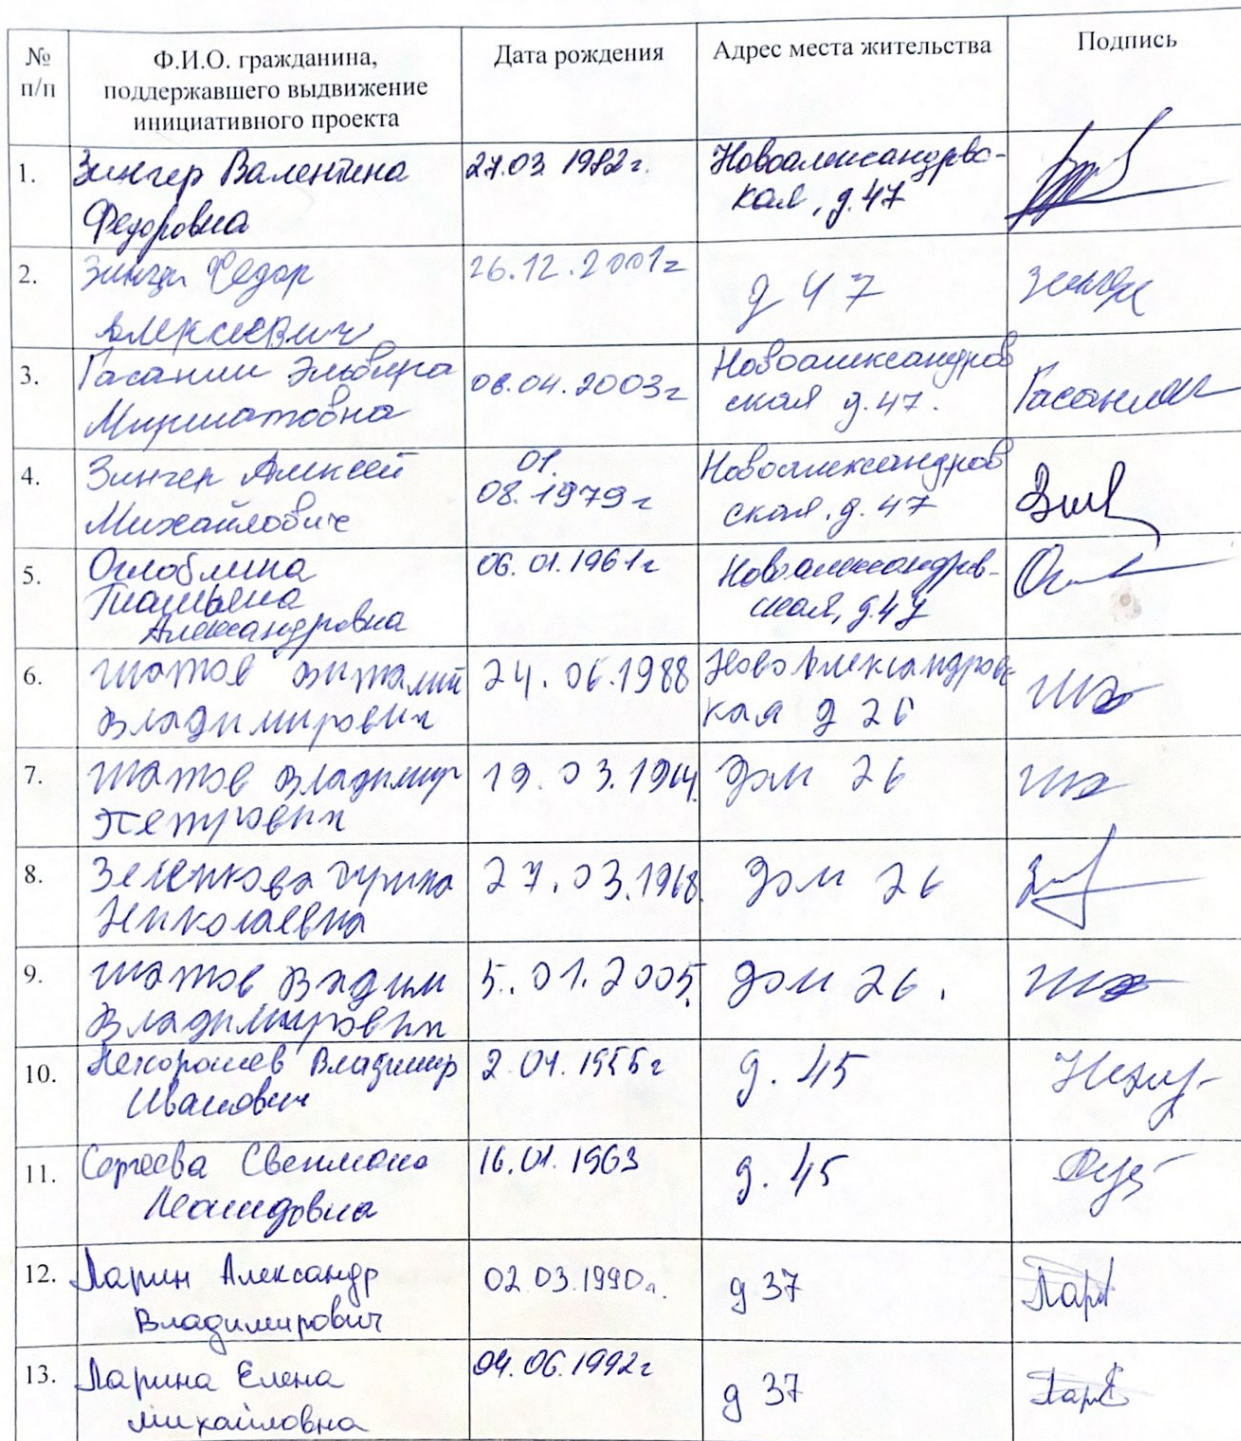 № п/п
Ф.И.О. гражданина, поддержавшего выдвижение инициативного проекта
Дата рождения
Адрес места жительства
Подпись
1.
Зингер Валентина
Федоровна
27.03.1982г.
Новоалександровс-
кая, д.47
2.
Зингер Федор
Алексеевич
26.12.2001г
д 47
Зингер
3.
Гасанли Эльвира
Миршатовна
08.04.2003г
Новоалександров
ская д.47.
Гасанли
4.
Зингер Алексей
Михайлович
01.
08.1979г
Новоалександров
ская, д.47
5.
Оглоблина
Татьяна
Александровна
06.01.1961г
Новоалександров-
ская, д.47
6.
Шатов Виталий
Владимирович
24.06.1988
Новоалександровс-
кая д 26
7.
Шатов Владимир
Петрович
19.03.1964.
дом 26
8.
Зеленкова Ирина
Николаевна
27.03.1968.
дом 26
9.
Шатов Вадим
Владимирович
5.01.2005.
дом 26.
10.
Нехорошев Владимир
Иванович
2.04.1956г
д. 45
11.
Сергеева Светлана
Леонидовна
16.01.1963
д. 45
12.
Ларин Александр
Владимирович
02.03.1990г.
д 37
Лар
13.
Ларина Елена
Михайловна
04.06.1992г
д 37
Лар